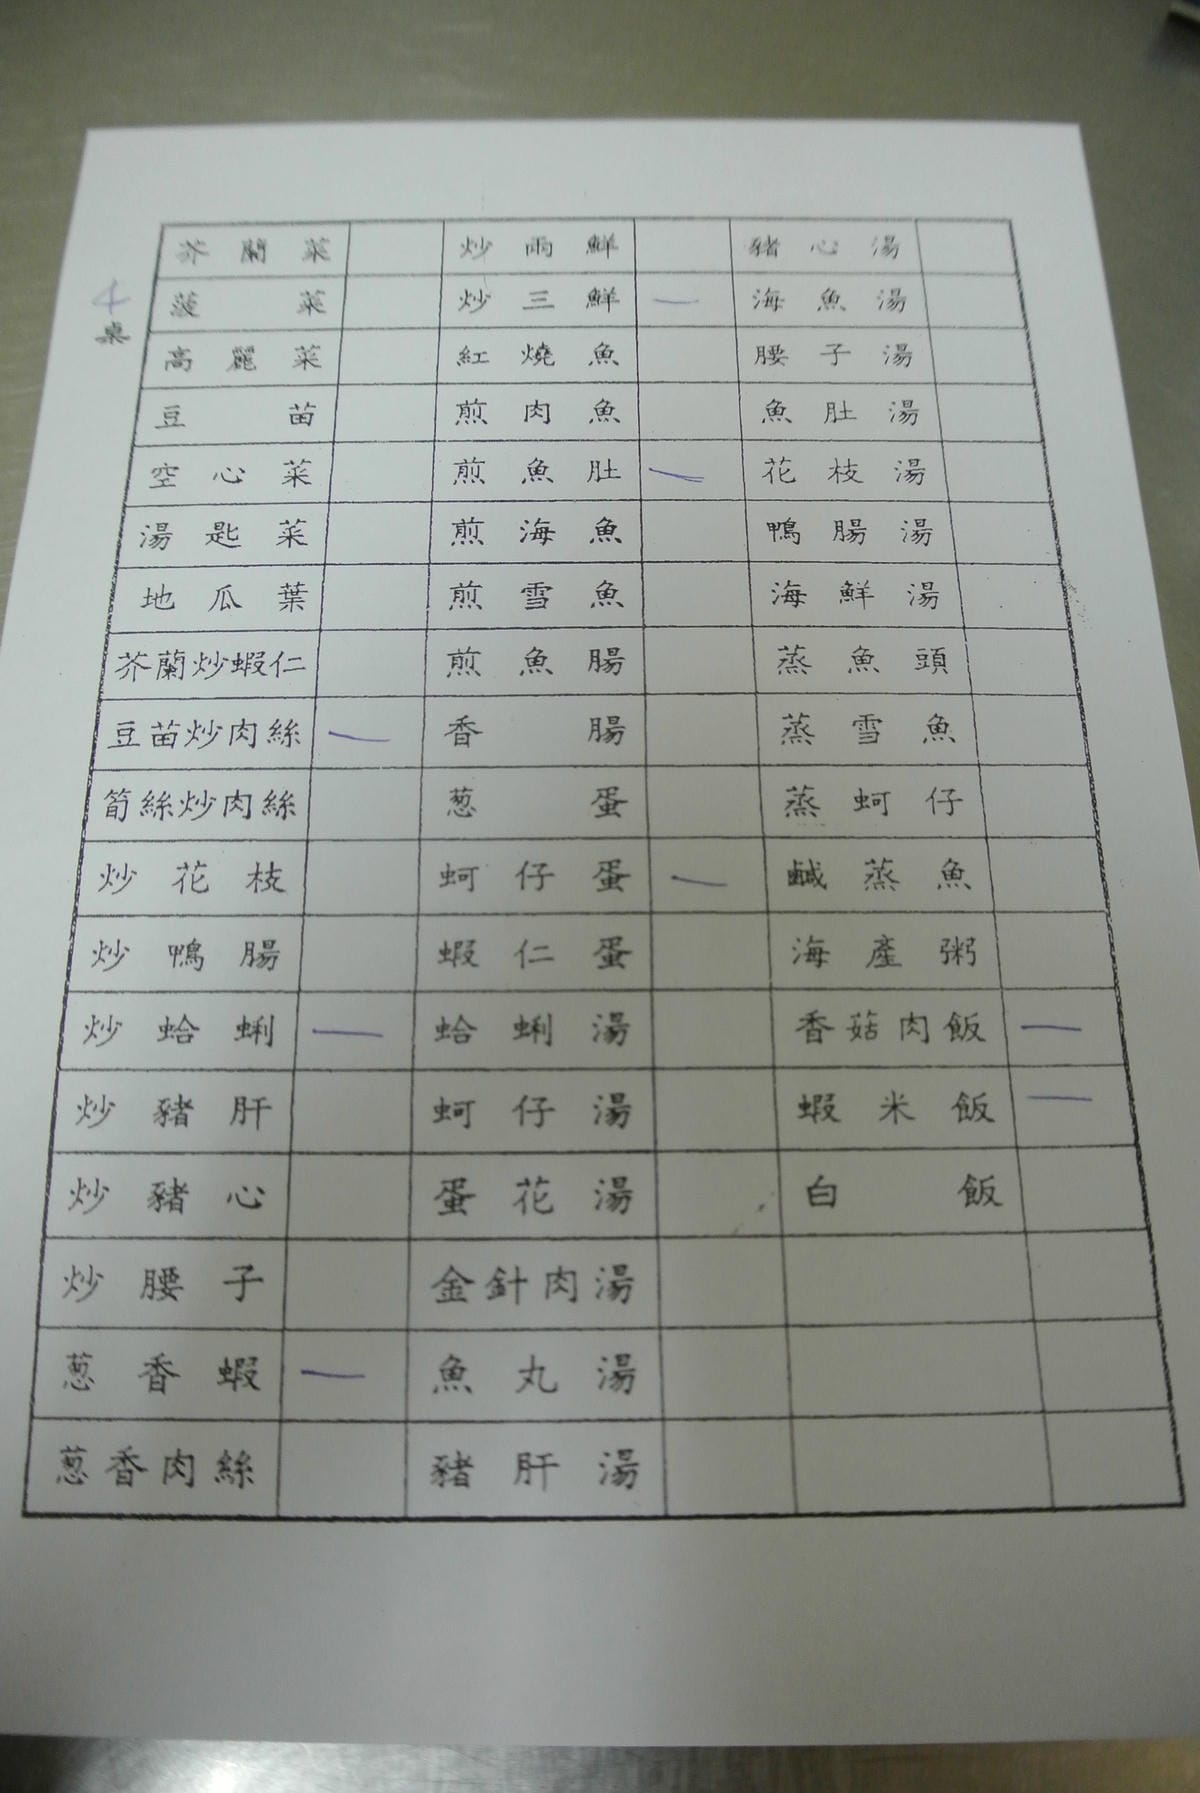 4桌
芥蘭菜 炒兩鮮 豬心湯
菠菜 炒三鮮 一 海魚湯
高麗菜 紅燒魚 腰子湯
豆苗 煎肉魚 魚肚湯
空心菜 煎魚肚 一 花枝湯
湯匙菜 煎海魚 鴨腸湯
地瓜葉 煎雪魚 海鮮湯
芥蘭炒蝦仁 煎魚腸 蒸魚頭
豆苗炒肉絲 一 香腸 蒸雪魚
筍絲炒肉絲 蔥蛋 蒸蚵仔
炒花枝 蚵仔蛋 一 鹹蒸魚
炒鴨腸 蝦仁蛋 海產粥
炒蛤蜊 一 蛤蜊湯 香菇肉飯 一
炒豬肝 蚵仔湯 蝦米飯 一
炒豬心 蛋花湯 白飯
炒腰子 金針肉湯
蔥香蝦 一 魚丸湯
蔥香肉絲 豬肝湯